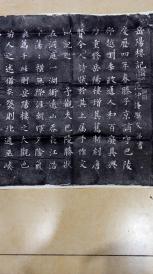 岳陽樓記
慶曆四年春滕子京謫守巴陵
郡越明年政通人和百廢具興
乃重修岳陽樓增其舊制刻唐
賢今人詩賦於其上屬予作文
以記之予觀夫巴陵勝狀
在洞庭一湖銜遠山吞長江浩
浩湯湯橫無際涯朝暉夕陰氣
象萬千此則岳陽樓之大觀也
前人之述備矣然則北通巫峽